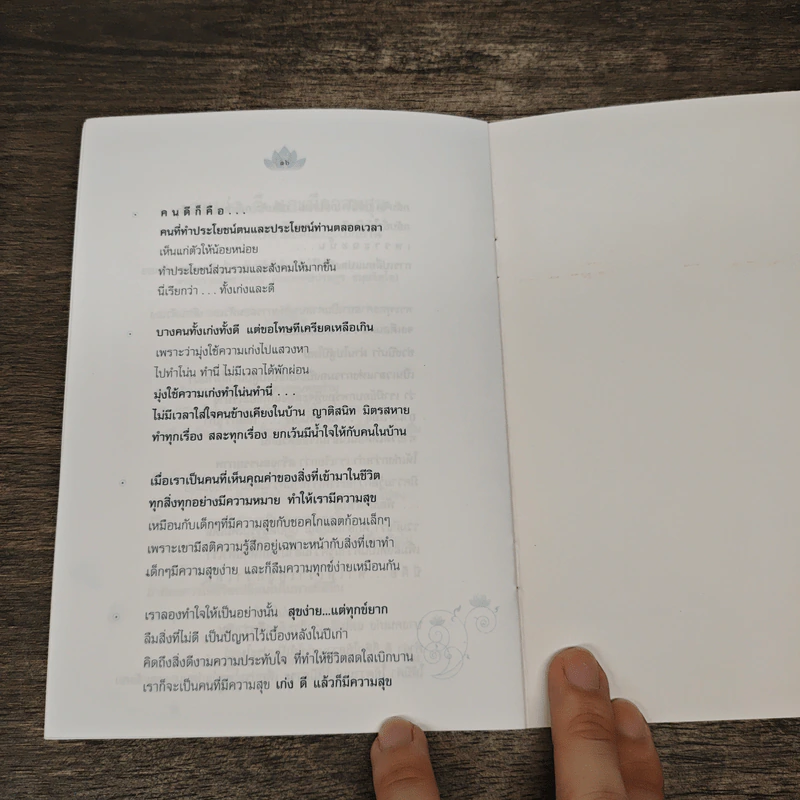 คนดีก็คือ...
คนที่ทำประโยชน์ตนและประโยชน์ท่านตลอดเวลา
เห็นแก่ตัวให้น้อยหน่อย
ทำประโยชน์ส่วนรวมและสังคมให้มากขึ้น
นี่เรียกว่า ... ทั้งเก่งและดี
บางคนทั้งเก่งทั้งดี แต่ขอโทษทีเครียดเหลือเกิน
เพราะว่ามุ่งใช้ความเก่งไปแสวงหา
ไปทำโน่น ทำนี่ ไม่มีเวลาได้พักผ่อน
มุ่งใช้ความเก่งทำโน่นทำนี่ ...
ไม่มีเวลาใส่ใจคนข้างเคียงในบ้าน ญาติสนิท มิตรสหาย
ทำทุกเรื่อง สละทุกเรื่อง ยกเว้นมีน้ำใจให้กับคนในบ้าน
เมื่อเราเป็นคนที่เห็นคุณค่าของสิ่งที่เข้ามาในชีวิต
ทุกสิ่งทุกอย่างมีความหมาย ทำให้เรามีความสุข
เหมือนกับเด็กๆที่มีความสุขกับชอคโกแลตก้อนเล็กๆ
เพราะเขามีสติความรู้สึกอยู่เฉพาะหน้ากับสิ่งที่เขาทำ
เด็กๆมีความสุขง่าย และก็ลืมความทุกข์ง่ายเหมือนกัน
เราลองทำใจให้เป็นอย่างนั้น สุขง่าย...แต่ทุกข์ยาก
ลืมสิ่งที่ไม่ดี เป็นปัญหาไว้เบื้องหลังในปีเก่า
คิดถึงสิ่งดีงามความประทับใจ ที่ทำให้ชีวิตสดใสเบิกบาน
เราก็จะเป็นคนที่มีความสุข เก่ง ดี แล้วก็มีความสุข